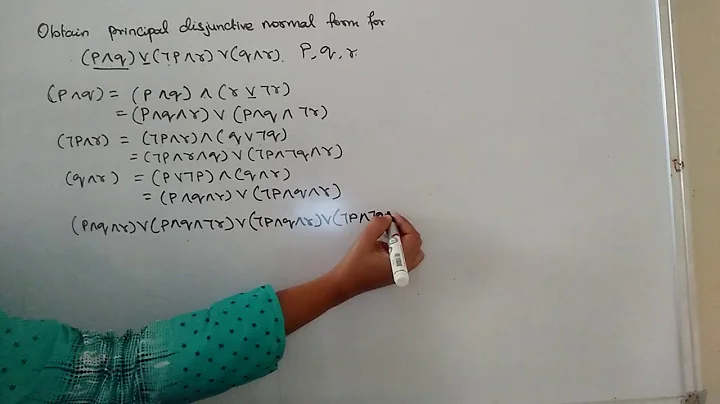 Obtain principal disjunctive normal form for
(P∧q)∨(¬P∧r)∨(q∧r). P, q, r.
(P∧q) = (P∧q)∧(r∨¬r)
= (P∧q∧r)∨(P∧q∧¬r)
(¬P∧r) = (¬P∧r)∧(q∨¬q)
= (¬P∧r∧q)∨(¬P∧¬q∧r)
(q∧r) = (P∨¬P)∧(q∧r)
= (P∧q∧r)∨(¬P∧q∧r)
(P∧q∧r)∨(P∧q∧¬r)∨(¬P∧q∧r)∨(¬P∧¬q